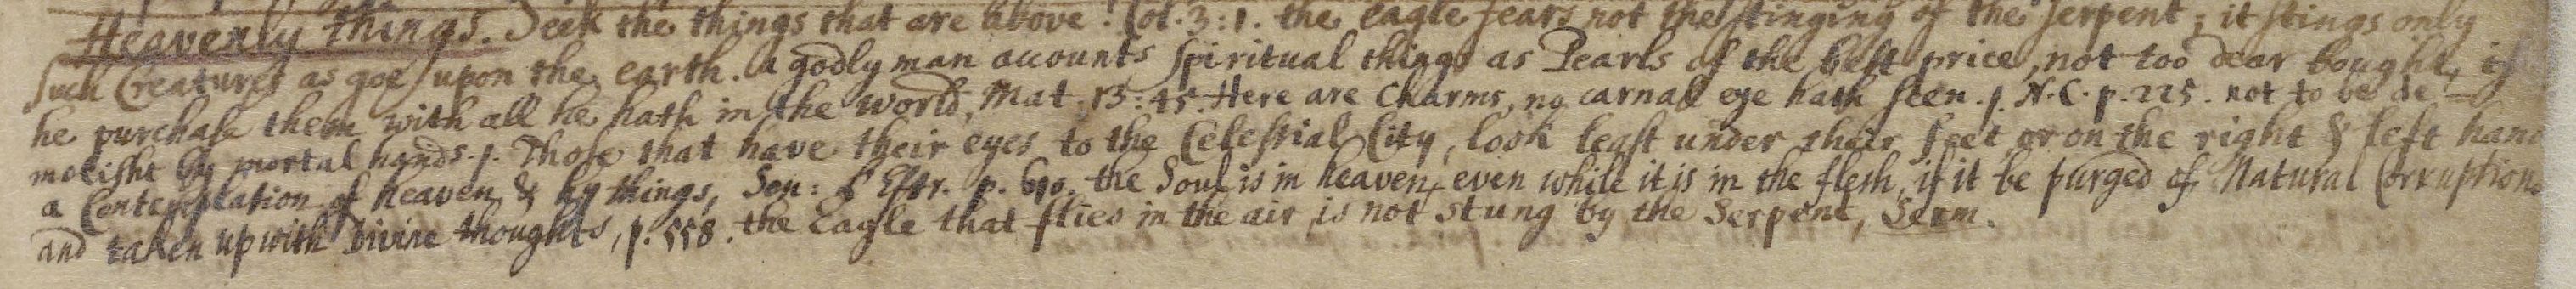 Heavenly things. Seek the things that are above. Col. 3:1. the eagle fears not the stinging of the serpent; it stings only
such Creatures as goe upon the earth. a godly man accounts spiritual things as Pearls of the best price, not too dear bought, if
he purchase them with all he hath in the world, Mat. 13:45. Here are Charms, no carnall eye hath seen. J. N.C. p. 225. not to be de-
molisht by mortal hands. J. Those that have their eyes to the Celestial City, look least under their feet, or on the right & left hand
a Contemplation of heaven, & hy things, Sen: p. 610. the Soul is in heaven, even while it is in the flesh, if it be purged of Natural Corruptions
and taken up with Divine thoughts, p. 558. the Eagle that flies in the air is not stung by the Serpent, Serm.